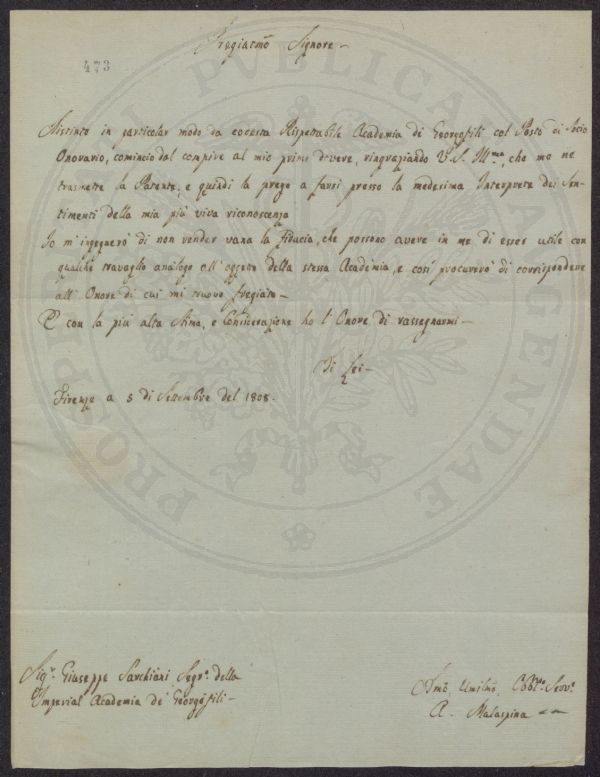 Pregiatmo Signore —
473
Distinto in particolar modo da codesta Rispettabile Academia de Georgofili col Posto di Socio
Onorario, comincio dal compire al mio primo dovere, ringraziando V. S. Illma, che me ne
trasmette la Patente, e quindi la prego a farsi presso la medesima Interprete dei Sen-
timenti della mia più viva riconoscenza
Io m'ingegnerò di non render vana la fiducia, che possono avere in me di esser utile con
qualche travaglio analogo all'oggetto della stessa Academia, e così procurerò di corrispondere
all'Onore di cui mi trovo fregiato —
E con la più alta Stima, e Considerazione ho l'Onore di rassegnarmi —
Di Lei —
Firenze a 5 di Settembre del 1808.
Sigr. Giuseppe Sarchiani Segro. della
Imperial Academia de' Georgofili —
Umilmo, Obblmo Servo.
A. Malaspina
PROSPERITATI PUBLICAE AUGENDAE